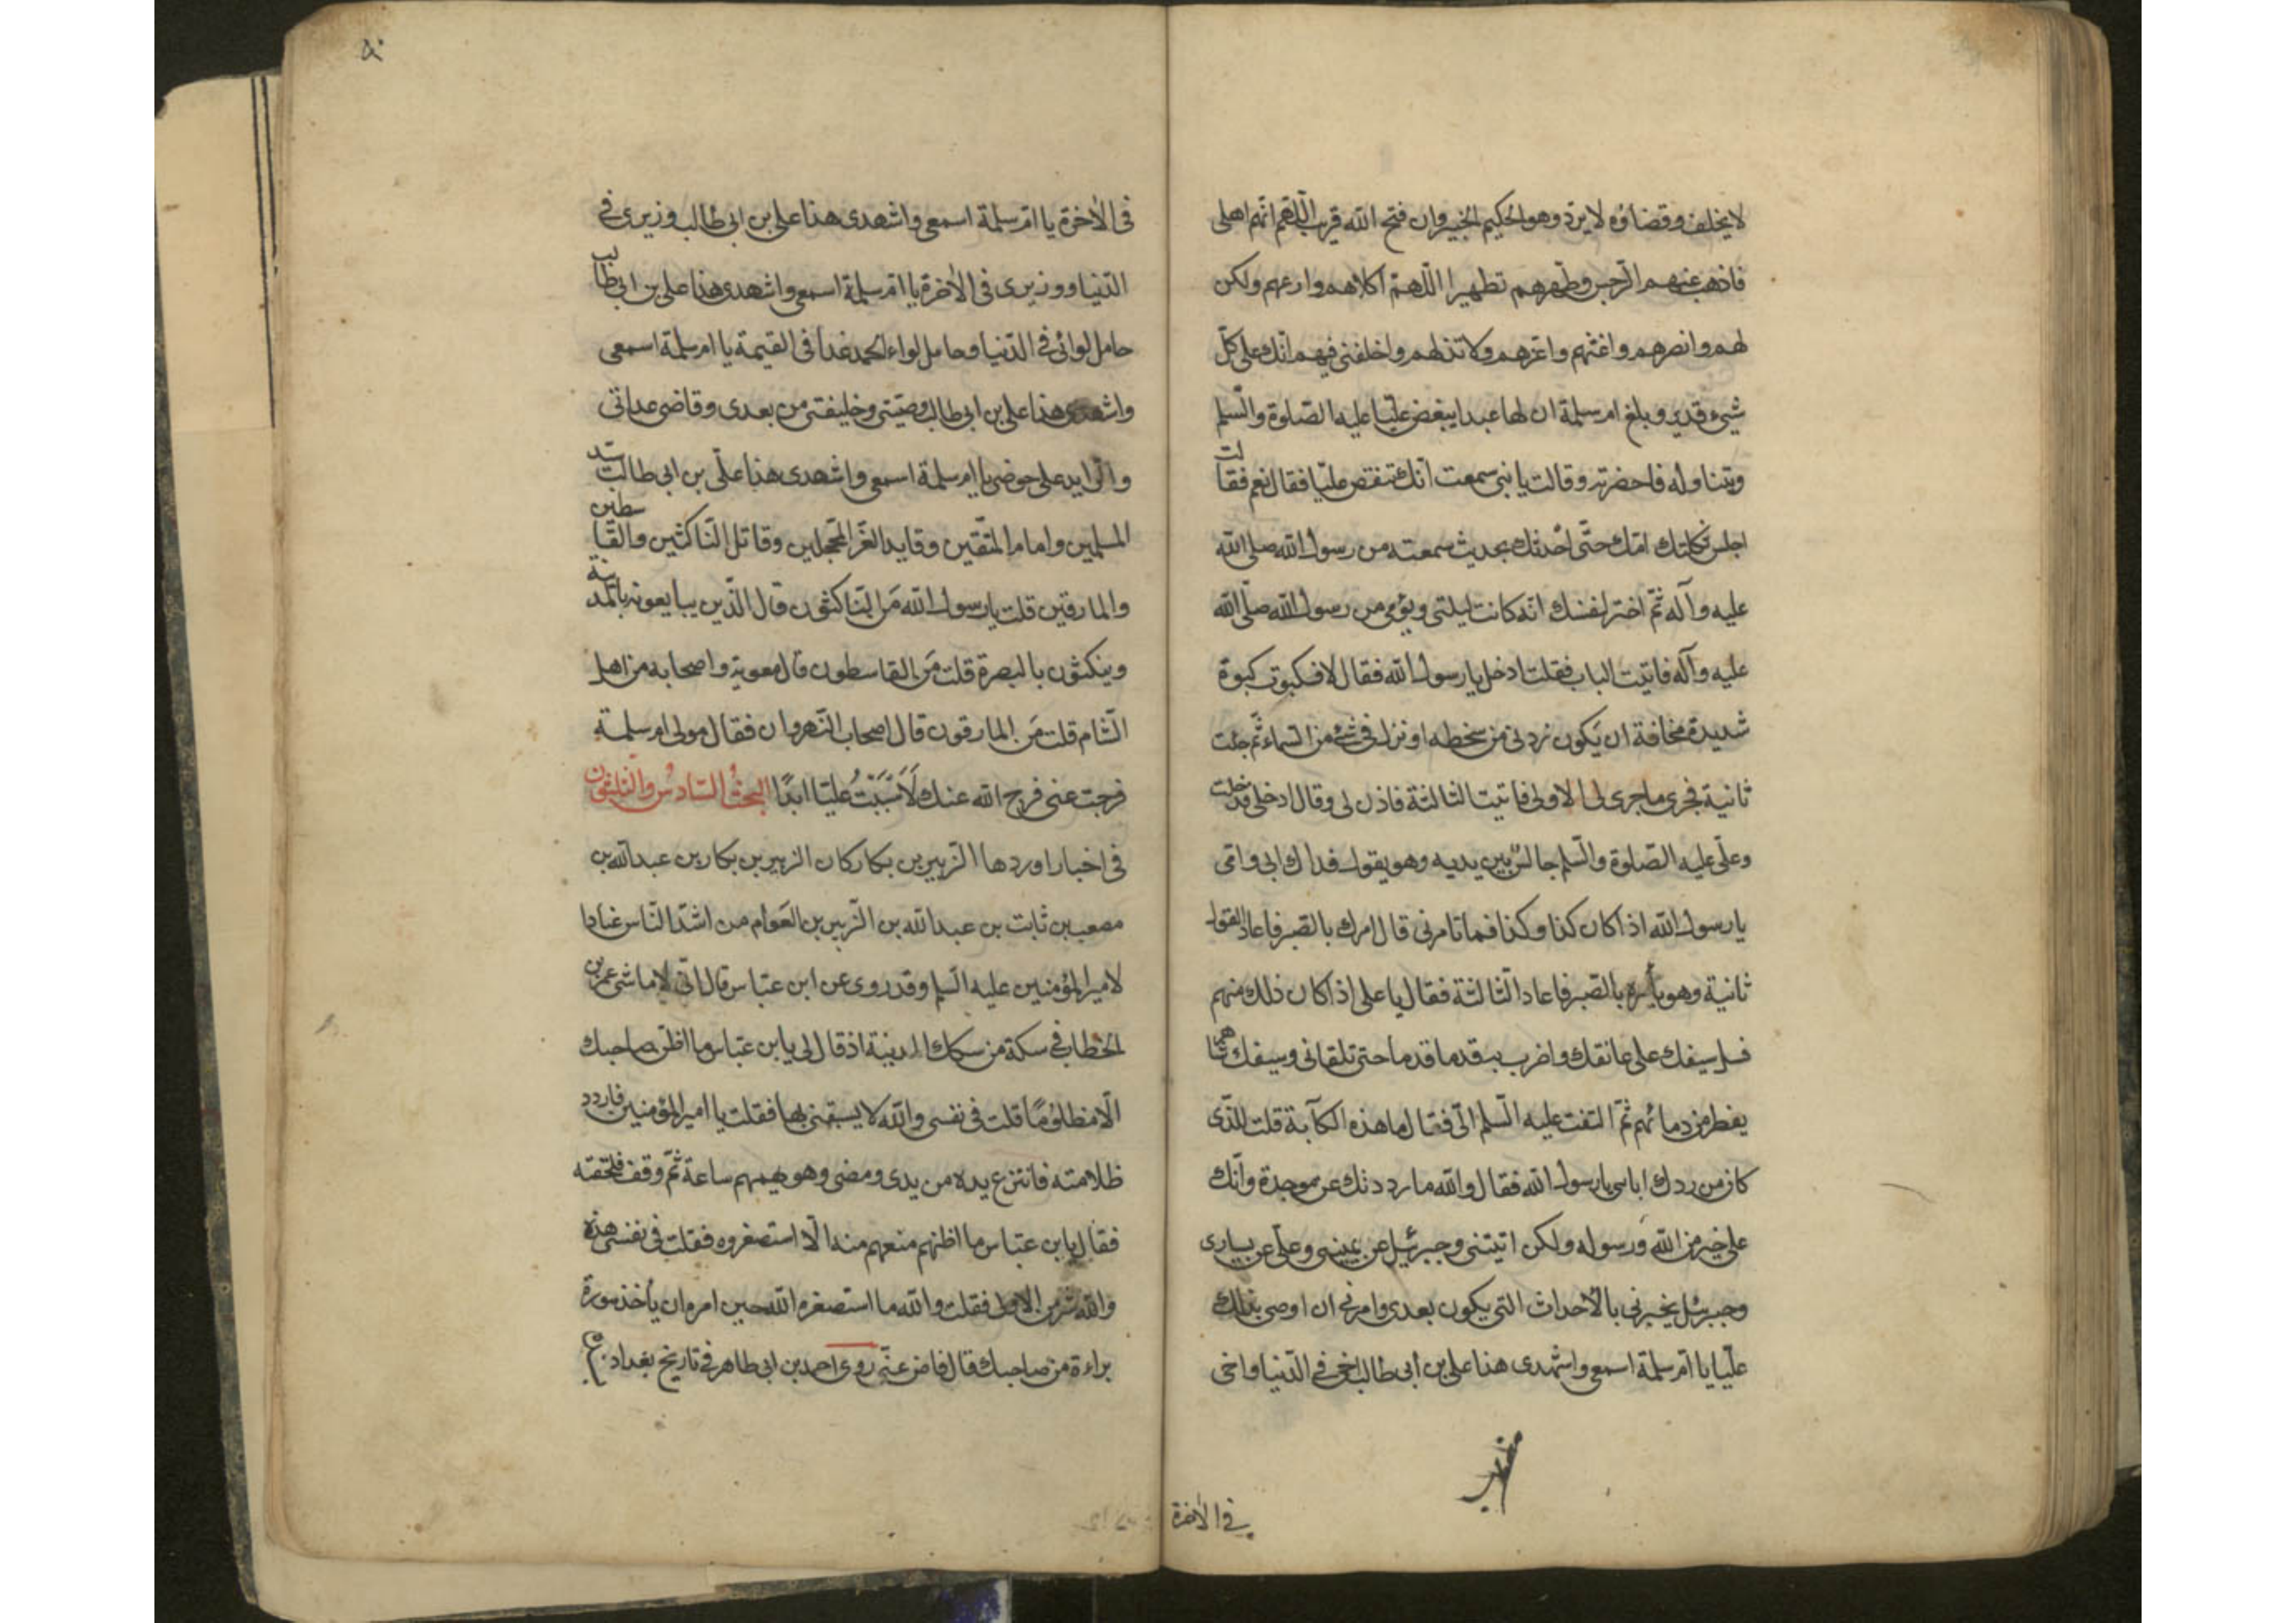 لا يخلف وقضاؤه لا يرد وهو الحكيم الخبير وان فتح الله قريب اللهم انهم اهلى
فاذهب عنهم الرجس وطهرهم تطهيرا اللهم اكلاهم وارعهم وكن
لهم وانصرهم واغثهم واعزهم ولا تذلهم واخلفنى فيهم انك على كل
شىء قدير وبلغ ام سلمة ان لها عبدا يبغض عليا عليه الصلوة والسلم
ويتناوله فاحضرته وقالت يا بنى سمعت انك تنقص عليا فقال نعم فقالت
اجلس ثكلتك امك حتى احدثك بحديث سمعته من رسول الله صلى الله
عليه وآله ثم اختر لنفسك انه كانت ليلتى ويومى من رسول الله صلى الله
عليه وآله فاتيت الباب فقلت ادخل يا رسول الله فقال لا فكبوت كبوة
شديدة مخافة ان يكون ردنى من سخطه او نزل فى شىء من السماء ثم جئت
ثانية فجرى ما جرى لى الاولى فاتيت الثالثة فاذن لى وقال ادخلى فدخلت
وعلى عليه الصلوة والسلم جالس بين يديه وهو يقول فداك ابى وامى
يا رسول الله اذا كان كذا وكذا فما تامرنى قال امرك بالصبر فاعاد القول
ثانية وهو يأمره بالصبر فاعاد الثالثة فقال يا على اذا كان ذلك منهم
فسل سيفك على عاتقك واضرب به قدما قدما حتى تلقانى وسيفك شاهر
يقطر من دمائهم ثم التفت عليه السلم الى فقال لما هذه الكآبة قلت للذى
كان من ردك اياى يا رسول الله فقال والله ما رددتك عن موجدة وانك
على خير من الله ورسوله ولكن اتيتنى وجبرئيل عن يمينى وعلى عن يسارى
وجبرئيل يخبرنى بالاحداث التى يكون بعدى وامرنى ان اوصى بذلك
عليا يا ام سلمة اسمعى واشهدى هذا على بن أبى طالب اخى فى الدنيا واخى
فى الآخرة
۵۰
فى الآخرة يا ام سلمة اسمعى واشهدى هذا على بن ابى طالب وزيرى فى
الدنيا ووزيرى فى الآخرة يا ام سلمة اسمعى واشهدى هذا على بن ابى طالب
حامل لوائى فى الدنيا وحامل لواء الحمد غدا فى القيمة يا ام سلمة اسمعى
واشهدى هذا على بن ابى طالب وصيتى وخليفتى من بعدى وقاضى عداتى
والزايد على حوضى يا ام سلمة اسمعى واشهدى هذا على بن ابى طالب سيد
المسلمين وامام المتقين وقايد الغر المحجلين وقاتل الناكثين والقاسطين
والمارقين قلت يا رسول الله من الناكثون قال الذين يبايعونه بالمدينة
وينكثون بالبصرة قلت من القاسطون قال معوية واصحابه من اهل
الشام قلت من المارقون قال اصحاب النهروان فقال مولى ام سلمة
فرجت عنى فرج الله عنك لَاسَبَبْتُ عليا ابدًا البحث السادس والثلثون
فى اخبار اوردها الزبير بن بكار كان الزبير بن بكار بن عبد الله بن
مصعب بن ثابت بن عبد الله بن الزبير بن العوام من اشد الناس عنادا
لامير المؤمنين عليه السلم وقد روى عن ابن عباس قال انى لاماشى عمر بن
الخطاب فى سكة من سكك المدينة اذ قال لى يا بن عباس ما اظن صاحبك
الا مظلومًا قلت فى نفسى والله لا يسبقنى بها فقلت يا امير المؤمنين فاردد
ظلامته فانتزع يده من يدى ومضى وهو يهمهم ساعة ثم وقف فلحقته
فقال يا بن عباس ما اظنهم منعهم منه الا استصغروه فقلت فى نفسى هذه
والله شر من الاولى فقلت والله ما استصغره الله حين امره ان يأخذ سورة
براءة من صاحبك قال فاعرض عنى روى احمد بن ابى طاهر فى تاريخ بغداد